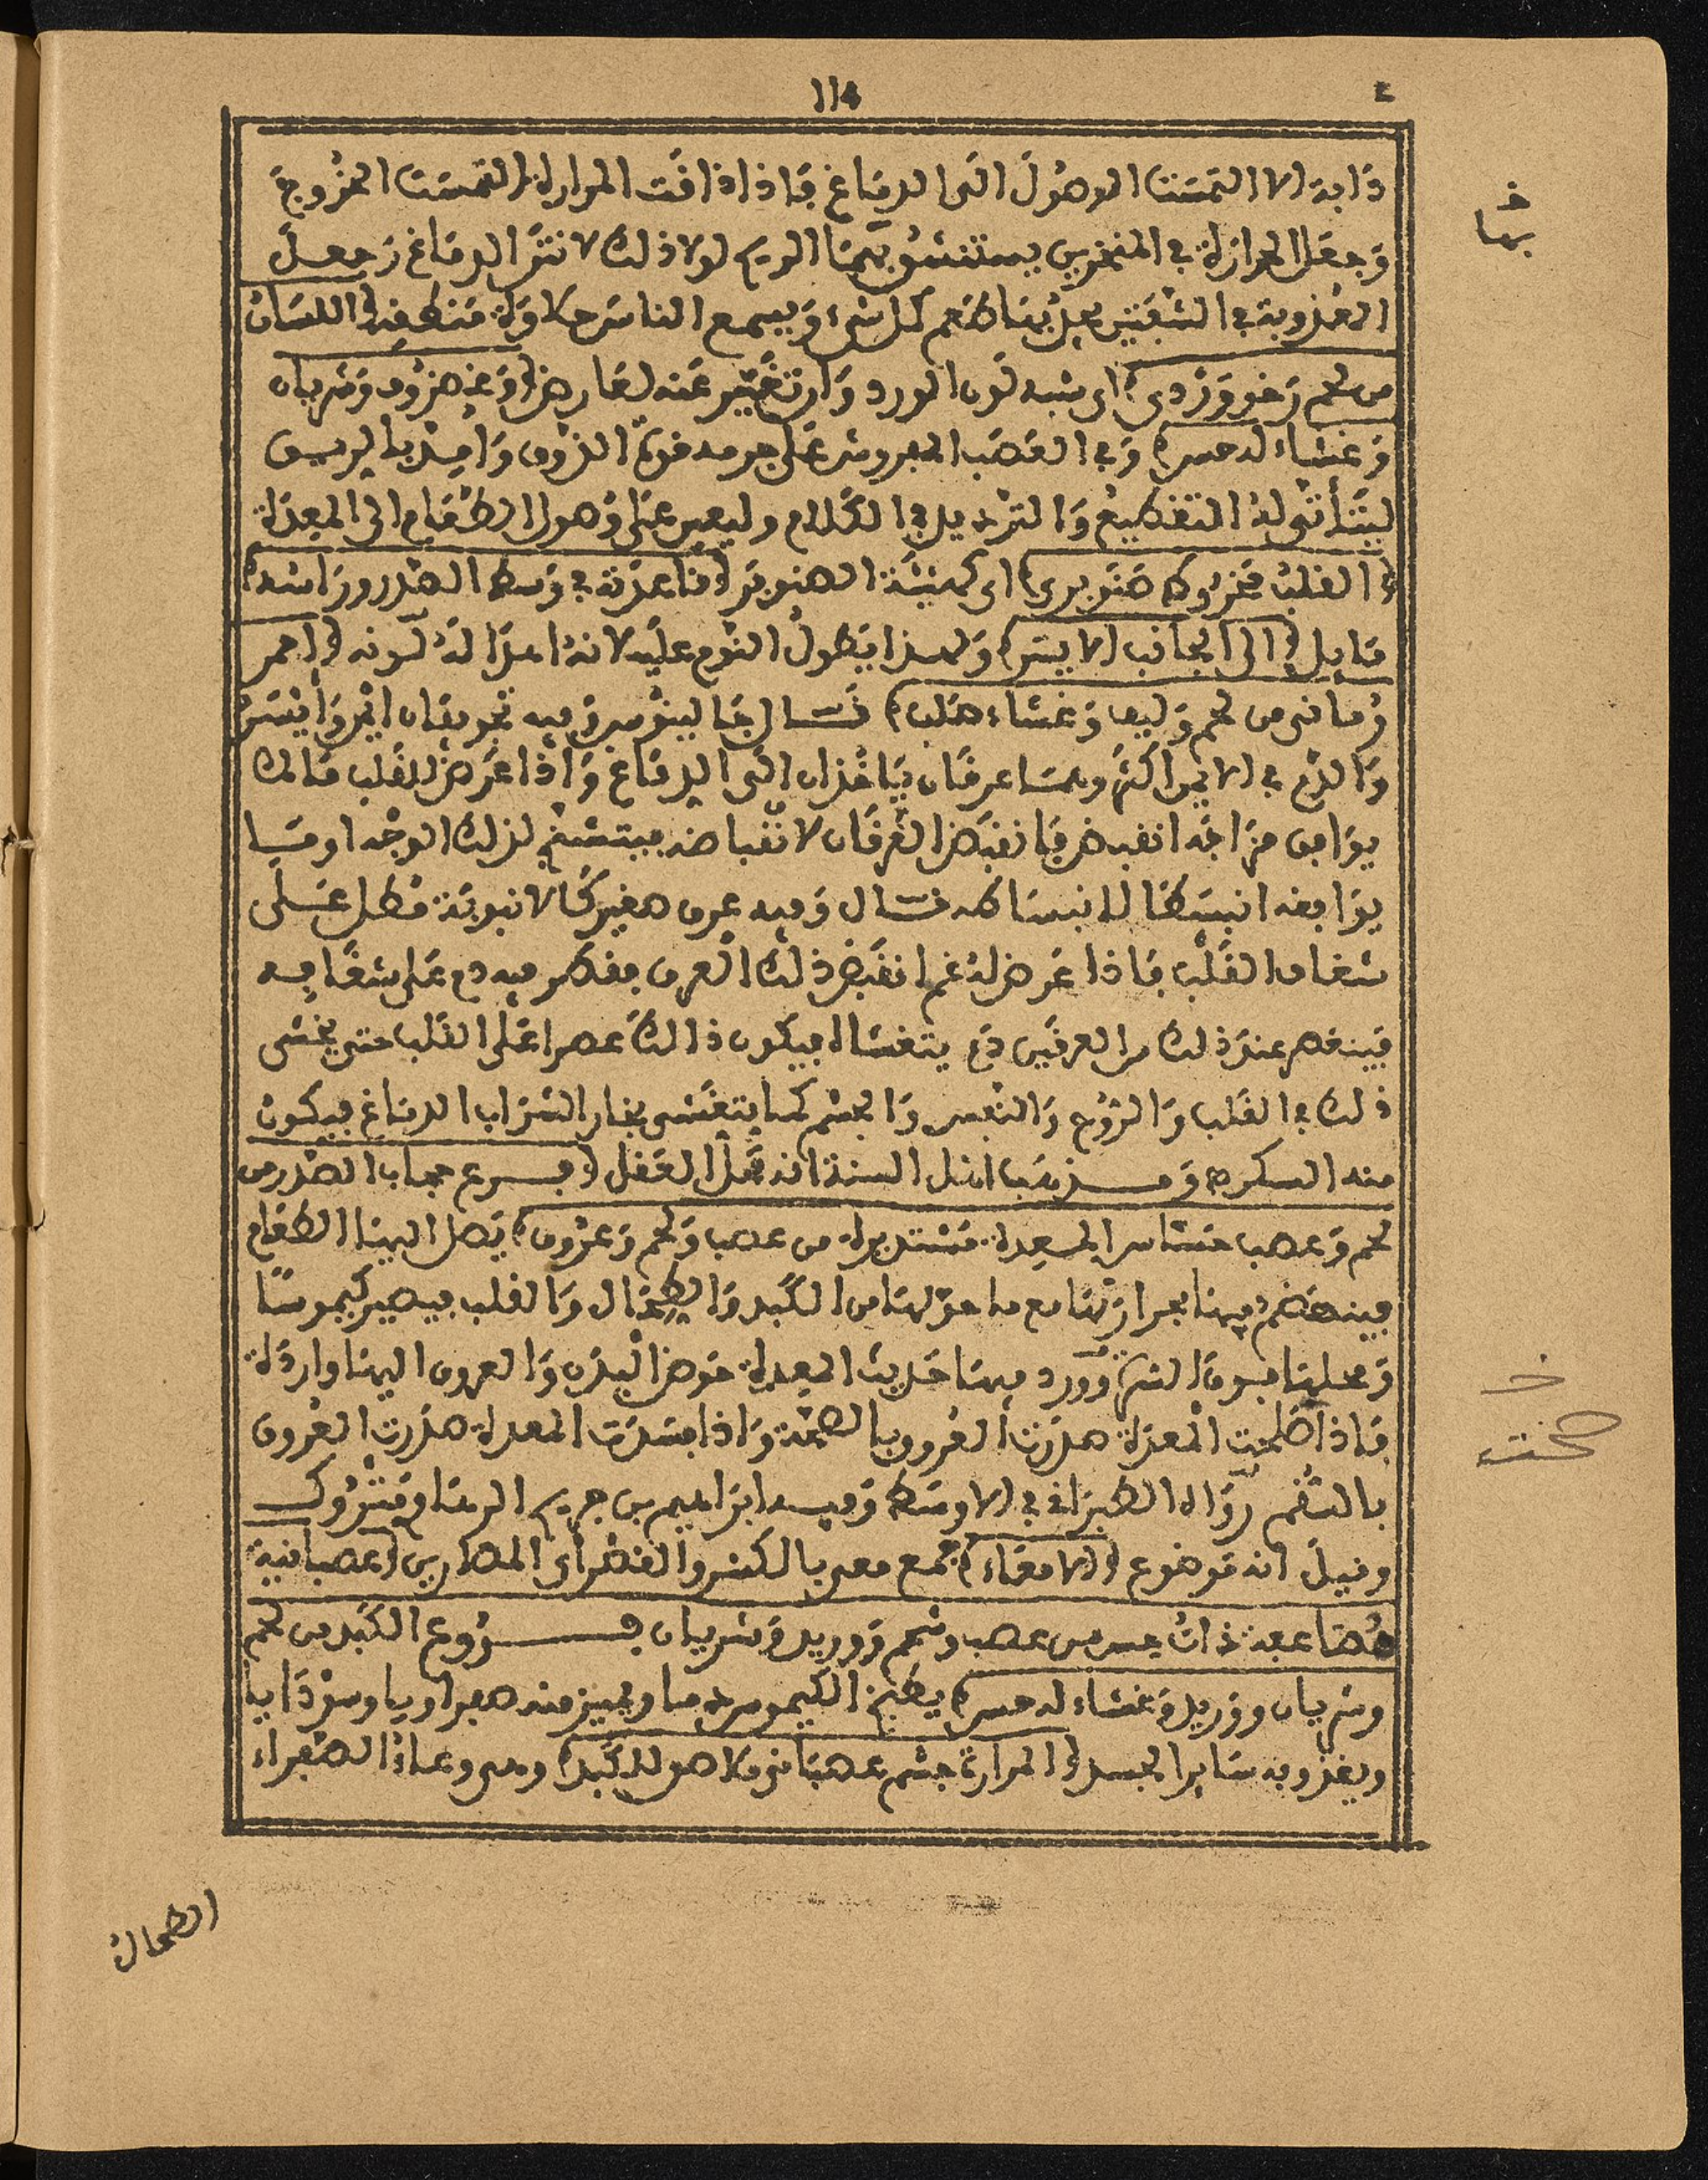 114
دَابة الا التمست الوصُول الَى الدمَاغ فَاذا ذاقَت المرارة التمسَت الخُروجَ
وَجعَل الحرارة في المنخرين يستنشق بهمَا الريح لولا ذلك لانتنَ الدمَاغ وَجعلَ
العذوبة في الشفَتين يجدُ بهمَا طعَم كل شيء وَيسمع الناسَ حلاوَة منطقه (اللسَان
من لحم رَخو وَرْدي) اي شبه لَون الورد وَان تغَيَّر عَنه لعَارض (وَعضرُوف وَشريان
وَغشاء له حس) وَفي العصَب المفروش عَلى جرمه قوة الذَوق وَامِدّ بالريق
ليتَأتى لهُ التقطيعُ وَالترديد في الكَلام وليعين عَلى وصول الطعَام الى المعِدَة
(القلبُ مخرُوط صَنَوبرى) اى كهيئَة الصنوبَر (قاعدَته في وَسط الصَدر وراسُه
مَايل (الى الجانب الايسَر) وَلهذا يَطولُ النَوم عليَه لانهُ اعدَا لهُ لَونه (احمر
رُماني من لحم وَليف وَغشاء صَلب) قَال جَالينوس وَفيه تجويفَان ايمَن وَايسَرُ
وَالدَم في الايمن اكثَر وبهمَا عرقَان يَاخُذان الَى الدمَاغ وَاذا عَرَض للقَلب مَالا
يوَافق مزَاجَه انقبض فَانقبَض العرقَان لانقَباضه فيتشنج لذلك الوجْه او مَا
يوَافقه انبسَطا لانبساطه قَال وَفيه عرق صغير كَالانبوبَة مُطل عَلى
شغاف القَلْب فَاذا عَرض لهُ غم انقبَض ذلكَ العرق فقطر منه دم عَلى شغَافه
فَينعصر عندَ ذلك من العرقَين دَم يتغشاه فيكون ذالكَ عصرا عَلى القَلب حتى يخشى
ذلك في القَلب وَالرُوح وَالنفس وَالجسَم كما يتغَشى بخار الشرَاب الدمَاغ فيكون
منه السكر وَمذهَب اهل السنة انه محَل العَقل (فرع حجاب الصَدر من
لحم وَعصب حسّاس المعِدة مُستديرة من عصب وَلحم وَعرُوق) يَصل اليهَا الطعَام
فينهضَم فيهَا بحرارتهَا مع ما حوْلهَا من الكَبد وَالطحَال وَالقلب فيصير كيموسًا
وَمحلهَا فوقَ السرَة وَورد فيهَا حَديث المعدة حَوض البدَن وَالعروق اليهَا واردَة
فَاذا صَلحت المعدَة صدَرَت العرُوق بالصحَة وَاذا فسَدَت المعدة صدَرت العُروق
بالسَقم روَاه الطبرَاني في الاوسَط وَفيه ابرَاهيم بن جريج الرهاوي متْرُوك
وقيلَ انه مَوضوع (الامعَاء) جمع معى بالكسر والقَصْر اى المصَارين (عصبَانية
مُضَاعفة ذاتُ حس من عصب وشحم وَوريد وَشريان فرُوع الكَبد من لحم
وشريان ووَريد وَغشاء له حس) يطبخ الكيموس دما ويميز منه صفراويا وسوْدَاويا
ويغذو به سَاير الجسد (المرارة جسَم عصبَاني ملاصق للكَبد) وهى وعاء الصَفراء
خ
بهما
خ
صحت
الطحال